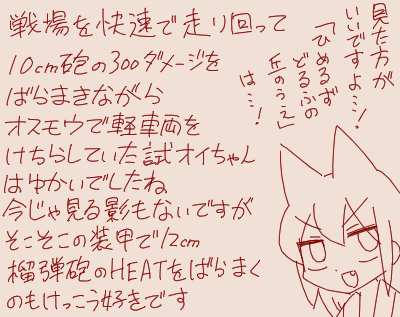 戦場を快速で走り回って
10cm砲の300ダメージを
ばらまきながら
オスモウで軽車両を
けちらしていた試オイちゃん
はゆかいでしたね
今じゃ見る影もないですが
そこそこの装甲で12cm
榴弾砲のHEATをばらまく
のもけっこう好きです
見た方が
いいですよ…!
「ひめるず
どるふの
丘のうえ」
は…!